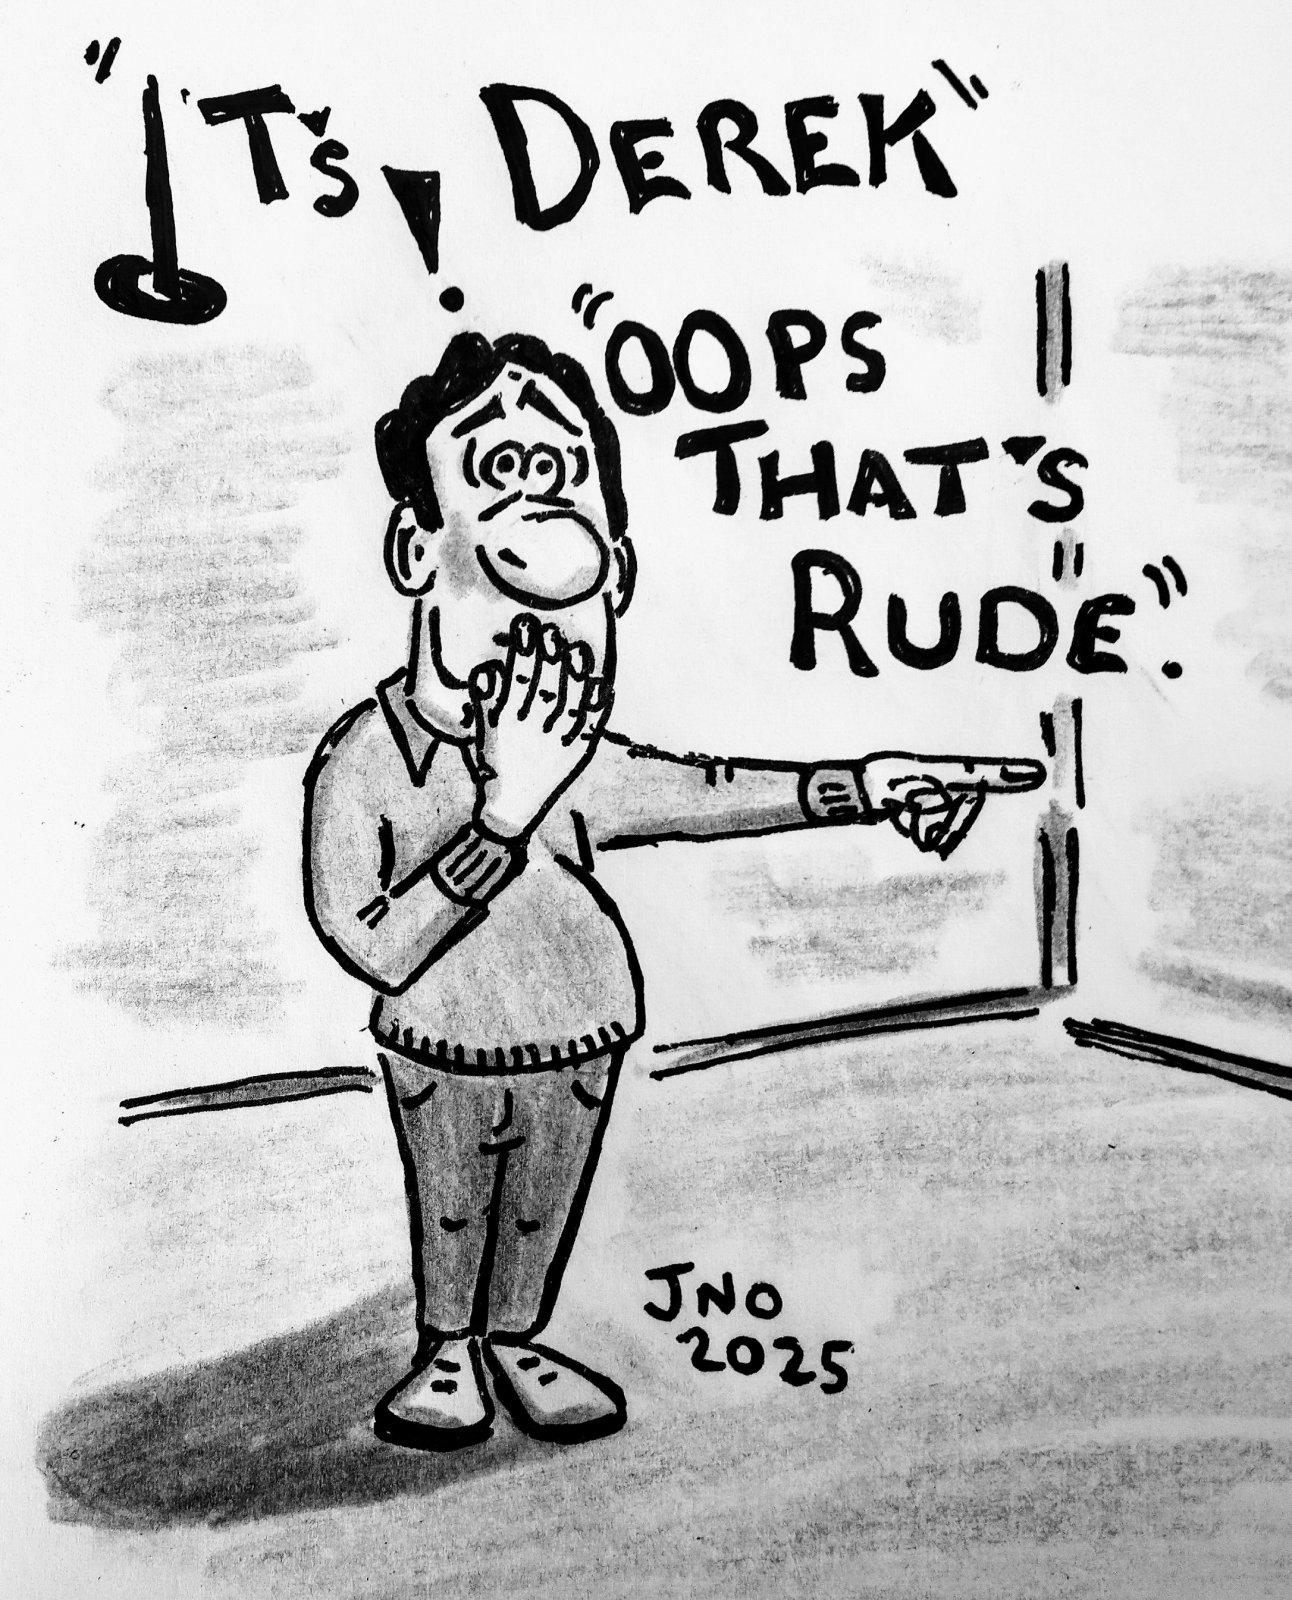 "IT'S, DEREK"
!
"OOPS
THAT'S
RUDE".
JNO
2025